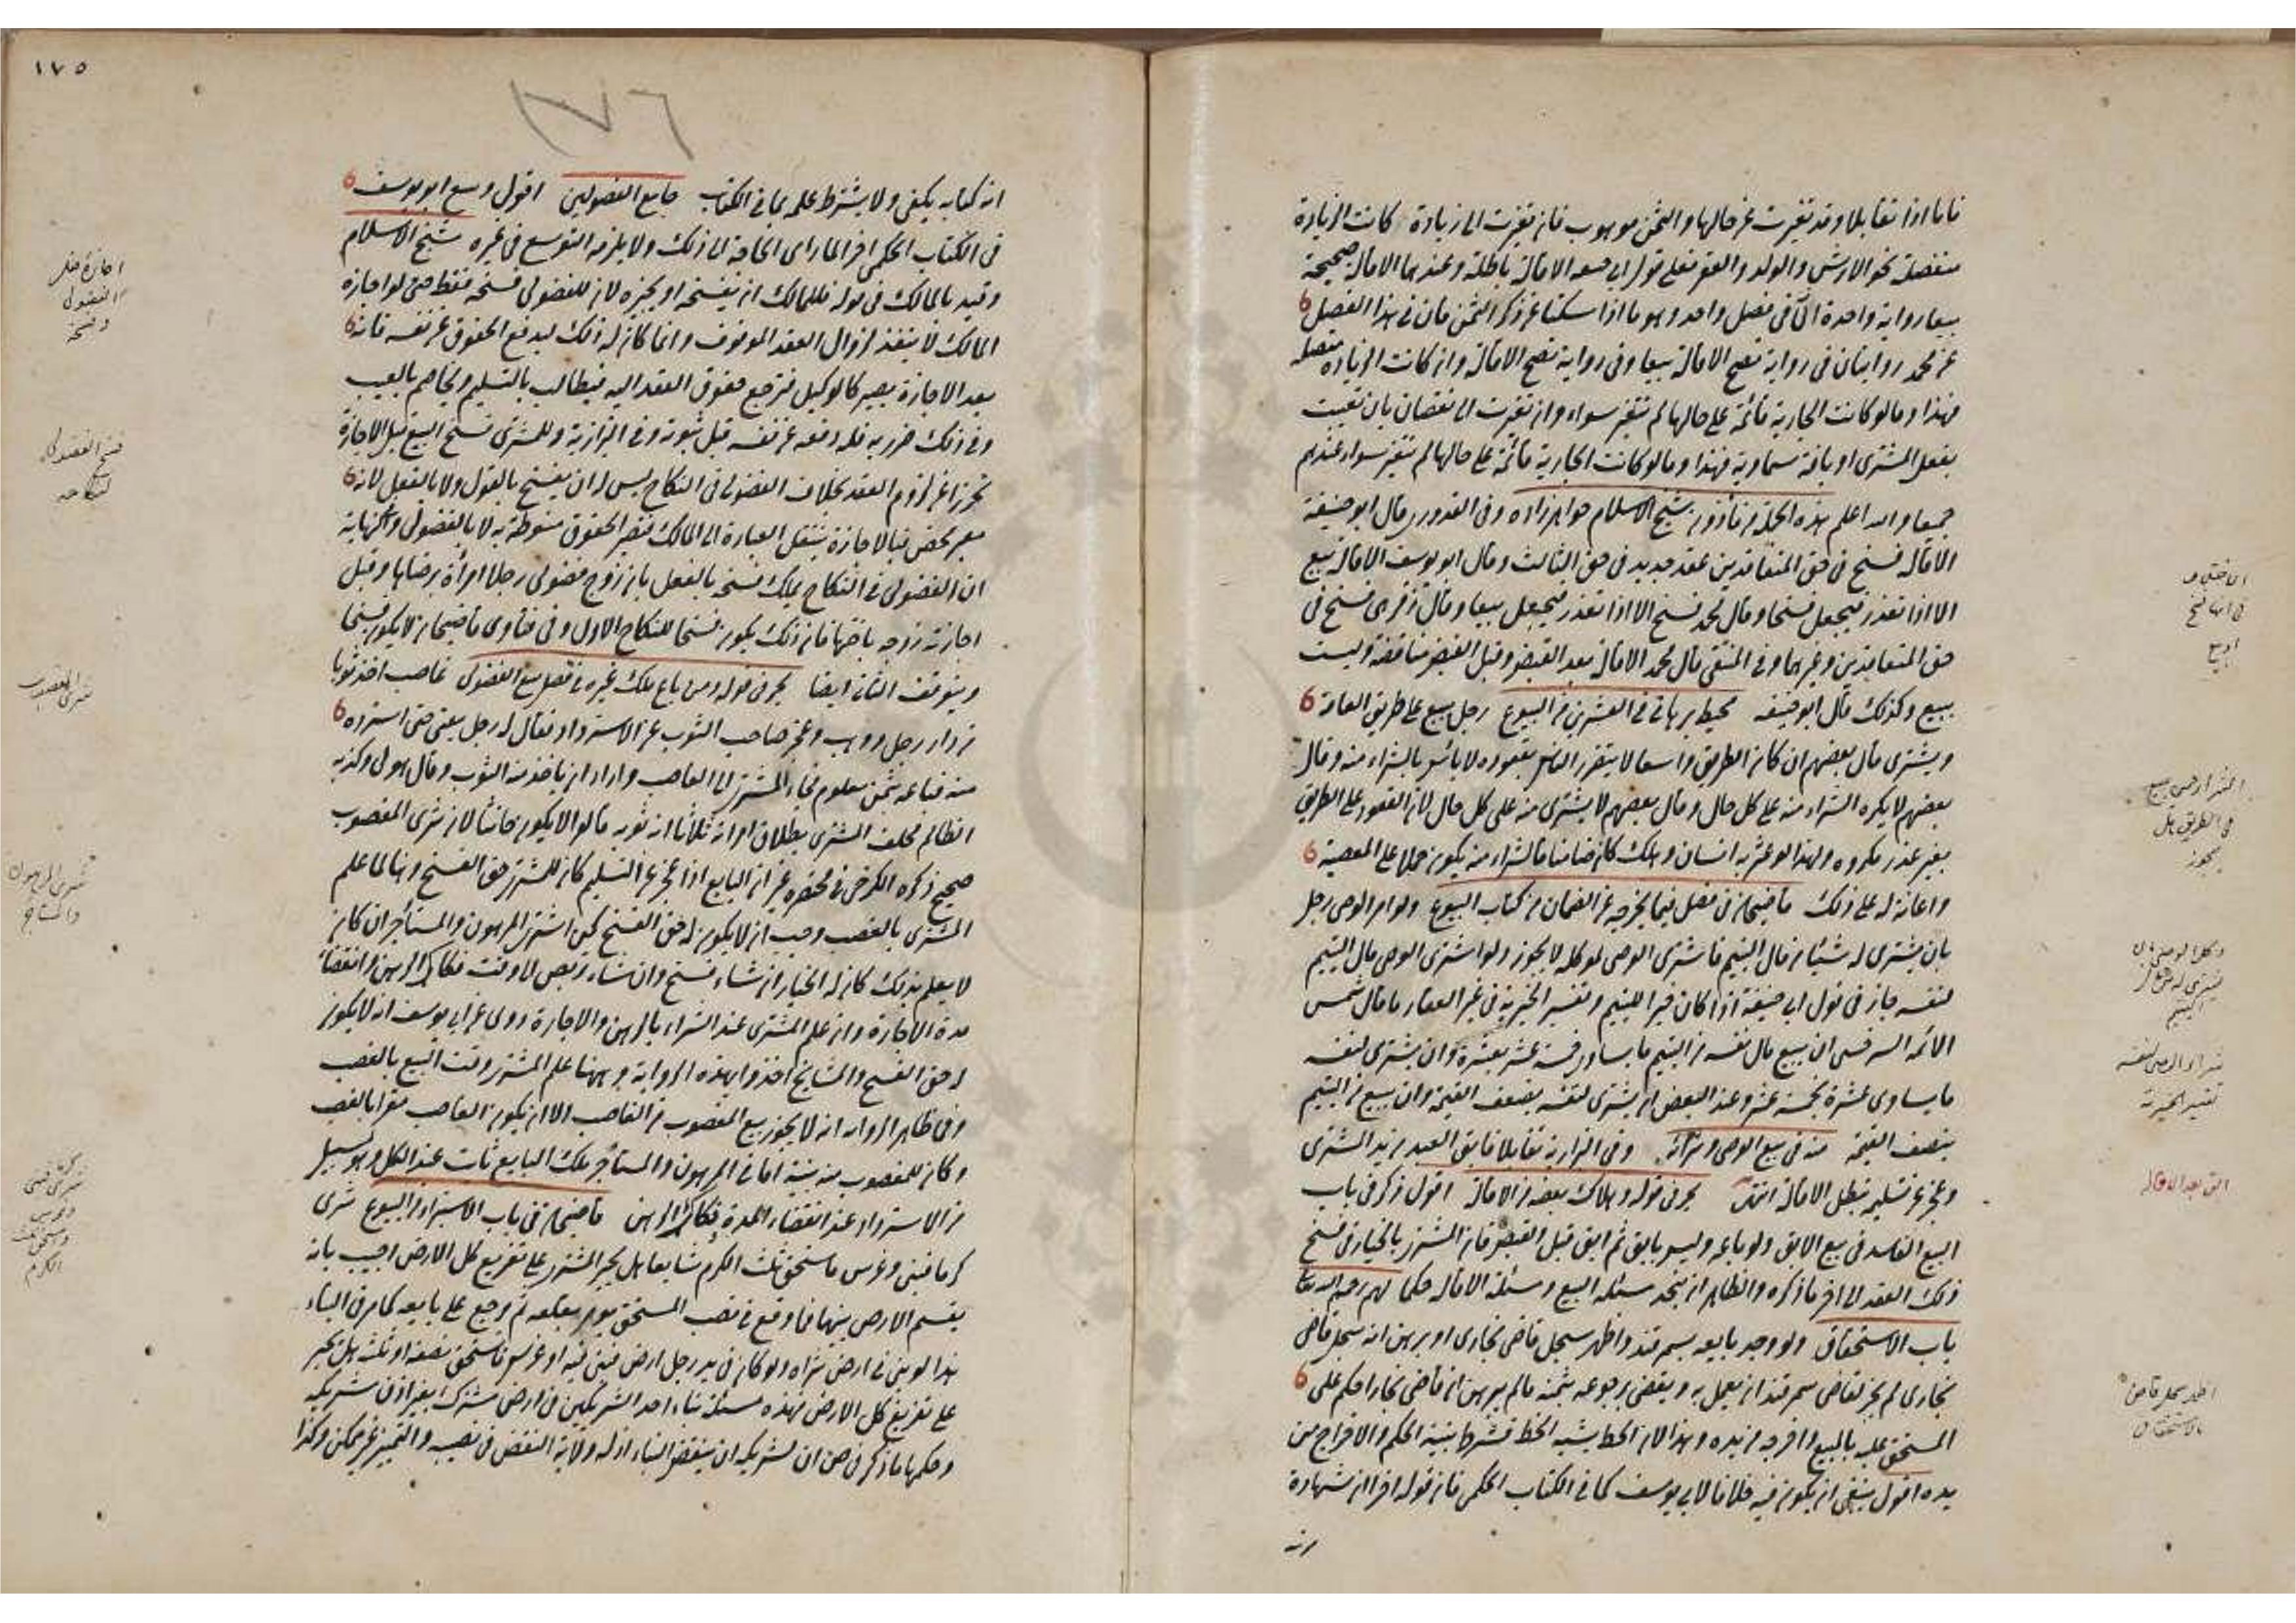 فاما اذا تقابلا وقد تغيرت عن حالها والثمن موهوب فان تغيرت الى زيادة كانت الزيادة
منفصلة نحو الارش والولد والعقر فعلى قول ابى حنيفة الاقالة باطلة وعندهما الاقالة صحيحة
بيعا رواية واحدة الا فى فصل واحد وهو ما اذا سكتا عن ذكر الثمن فان فى هذا الفصل
عن محمد روايتان فى رواية تصح الاقالة بيعا وفى رواية تصح الاقالة وان كانت الزيادة متصلة
فهذا وما لو كانت الجارية قائمة على حالها لم تتغير سواء وان تغيرت الى نقصان بان تعيبت
بفعل المشترى او بافة سماوية فهذا وما لو كانت الجارية قائمة على حالها لم تتغير سواء عندهم
جميعا والله اعلم هذه الجملة من ماذون شيخ الاسلام خواهرزاده وفى القدورى قال ابو حنيفة
الاقالة فسخ فى حق المتعاقدين عقد جديد فى حق الثالث وقال ابو يوسف الاقالة بيع
الا اذا تعذر فيجعل فسخا وقال محمد فسخ الا اذا تعذر فيجعل بيعا وقال زفر هى فسخ فى
حق المتعاقدين وغيرهما وفى المنتقى قال محمد الاقالة بعد القبض وقبل القبض مناقضة وليست
ببيع وكذلك قال ابو حنيفة محيط برهانى فى العشرين من البيوع رجل يبيع على طريق العامة
ويشترى قال بعضهم ان كان الطريق واسعا لا يتضرر الناس بقعوده لا باس بالشراء منه وقال
بعضهم لا يكره الشراء منه على كل حال وقال بعضهم لا يشترى منه على كل حال لان القعود على الطريق
بغير عذر مكروه ولهذا لو عثر به انسان وهلك كان ضامنا فالشراء منه يكون حملا على المعصية
واعانة له على ذلك قاضيخان فى فصل فيما يخرجه عن الضمان من كتاب البيوع ولو امر الوصى رجل
بان يشترى له شيئا من مال اليتيم فاشترى الوصى لموكله لا يجوز ولو اشترى الوصى مال اليتيم
لنفسه جاز فى قول ابى حنيفة اذا كان خيرا لليتيم وتفسير الخيرية فى غير العقار ما قال شمس
الائمة السرخسى ان يبيع مال نفسه من اليتيم ما يساوى خمسة عشر بعشرة وان يشترى لنفسه
ما يساوى عشرة بخمسة عشر وعند البعض ان يشترى لنفسه بضعف القيمة وان يبيع من اليتيم
بنصف القيمة منه فى بيع الوصى وشرائه وفى البزازية تقايلا فابق العبد من يد المشترى
وعجز عن تسليمه تبطل الاقالة انتهى بحر فى قوله وهلاك بعضه من الاقالة اقول ذكر فى باب
البيع الفاسد فى بيع الابق ولو باعه وليس بابق ثم ابق قبل القبض فان المشترى بالخيار فى فسخ
ذلك العقد الى اخر ما ذكره والظاهر ان يتحد مسئلة البيع ومسئلة الاقالة حكما لهم رحمه الله تعالى
باب الاستحقاق ولو وجد بايعه بسمرقند واظهر سجل قاضى بخارى او برهن انه سجل قاضى
بخارى لم يجز لقاضى سمرقند ان يعمل به ويقضى برجوعه بثمنه ما لم يبرهن ان قاضى بخارا حكم على
المستحق عليه بالمبيع واخرجه من يده وهذا لان الخط يشبه الخط فشرط بينة الحكم والاخراج من
يده اقول ينبغى ان يكون فيه خلافا لابى يوسف كما فى الكتاب الحكمى فان قوله اخرا ان شهادة
انه
الاختلاف
فى انها فسخ
او بيع
الشراء ممن يبيع
فى الطريق هل
يجوز
وكل الوصى بان
يشترى له من مال
اليتيم
شراء الوصى لنفسه
تفسير الخيرية
ابق بعد الاقالة
اظهر سجل قاض
بالاستحقاق
١٧٥
١٧٦
انه كتابه يكفى ولا يشترط علمه بما فى الكتاب جامع الفصولين اقول وسع ابو يوسف
فى الكتاب الحكمى اخرا لما راى الحاجة الى ذلك ولا يلزمه التوسع فى غيره شيخ الاسلام
وقيد بالمالك فى قوله فللمالك ان يفسخه او يجيزه لان للفضولى فسخه فقط حتى لو اجازه
المالك لا ينفذ لزوال العقد الموقوف وانما كان له ذلك ليدفع الحقوق عن نفسه فانه
بعد الاجازة يصير كالوكيل فترجع حقوق العقد اليه فيطالب بالتسليم ويخاصم بالعيب
وفى ذلك ضرر به فله دفعه عن نفسه قبل ثبوته وفى البزازية وللمشترى فسخ البيع قبل الاجازة
تحرزا عن لزوم العقد بخلاف الفضولى فى النكاح ليس له ان يفسخ بالقول ولا بالفعل لانه
معبر محض فبالاجازة ينتقل العبارة الى المالك فتصير الحقوق منوطة به لا بالفضولى وفى النهاية
ان الفضولى فى النكاح يملك فسخه بالفعل بان زوج فضولى رجلا امرأة برضاها وقبل
اجازته زوجه باختها فان ذلك يكون فسخا للنكاح الاول وفى فتاوى قاضيخان لا يكون فسخا
ويتوقف الثانى ايضا بحر فى قوله ومن باع ملك غيره فى فصل بيع الفضولى غاصب اخذ ثوبا
من دار رجل ووهب وعجز صاحب الثوب عن الاسترداد فقال له رجل بعنى حتى استرده
منه فباعه بثمن معلوم فجاء المشترى الى الغاصب واراد ان ياخذ منه الثوب وقال هو لى وكذبه
الظالم فحلف المشترى بطلاق امراته ثلاثا انه ثوبه قالوا لا يكون حانثا لان شرى المغصوب
صحيح ذكره الكرخى فى مختصره غير ان البايع اذا عجز عن التسليم كان للمشترى حق الفسخ وهنا لما علم
المشترى بالغصب وجب ان لا يكون له حق الفسخ كمن اشترى المرهون والمستأجر ان كان
لا يعلم بذلك كان له الخيار ان شاء فسخ وان شاء تربص الى وقت فكاك الرهن وانقضاء
مدة الاجارة وان علم المشترى عند الشراء بالرهن والاجارة روى عن ابى يوسف انه لا يكون
له حق الفسخ والمشايخ اخذوا بهذه الرواية وههنا علم المشترى وقت البيع بالغصب
وفى ظاهر الرواية انه لا يجوز بيع المغصوب من الغاصب الا ان يكون الغاصب مقرا بالغصب
وكان للمغصوب منه بينة اما فى المرهون والمستأجر ملك البايع ثابت عند الكل وهو بسبيل
من الاسترداد عند انقضاء المدة وفكاك الرهن قاضيخان فى باب الاستبراء من البيوع شرى
كرما فبنى وغرس فاستحق ثلث الكرم شايعا هل يجبر المشترى على تفريغ كل الارض اجيب بانه
يقسم الارض بينهما فما وقع فى نصيب المستحق يؤمر بقلعه ثم يرجع على بايعه كما مر فى البناء
هذا لو بنى فى ارض شراه ولو كان فى يد رجل ارض فبنى فيه او غرس فاستحق نصفه او ثلثه هل يجبر
على تفريغ كل الارض فهذه مسئلة بناء احد الشريكين فى ارض مشترك بغير اذن شريكه
وحكمها ما ذكر فى ان لشريكه ان ينقض البناء اذ له ولاية النقض فى نصيبه والتمييز غير ممكن وكذا
الفضولى
وفسخه
فسخ الفضولى
نكاحه
شرى المغصوب
شرى المرهون
والمستأجر
الكرم